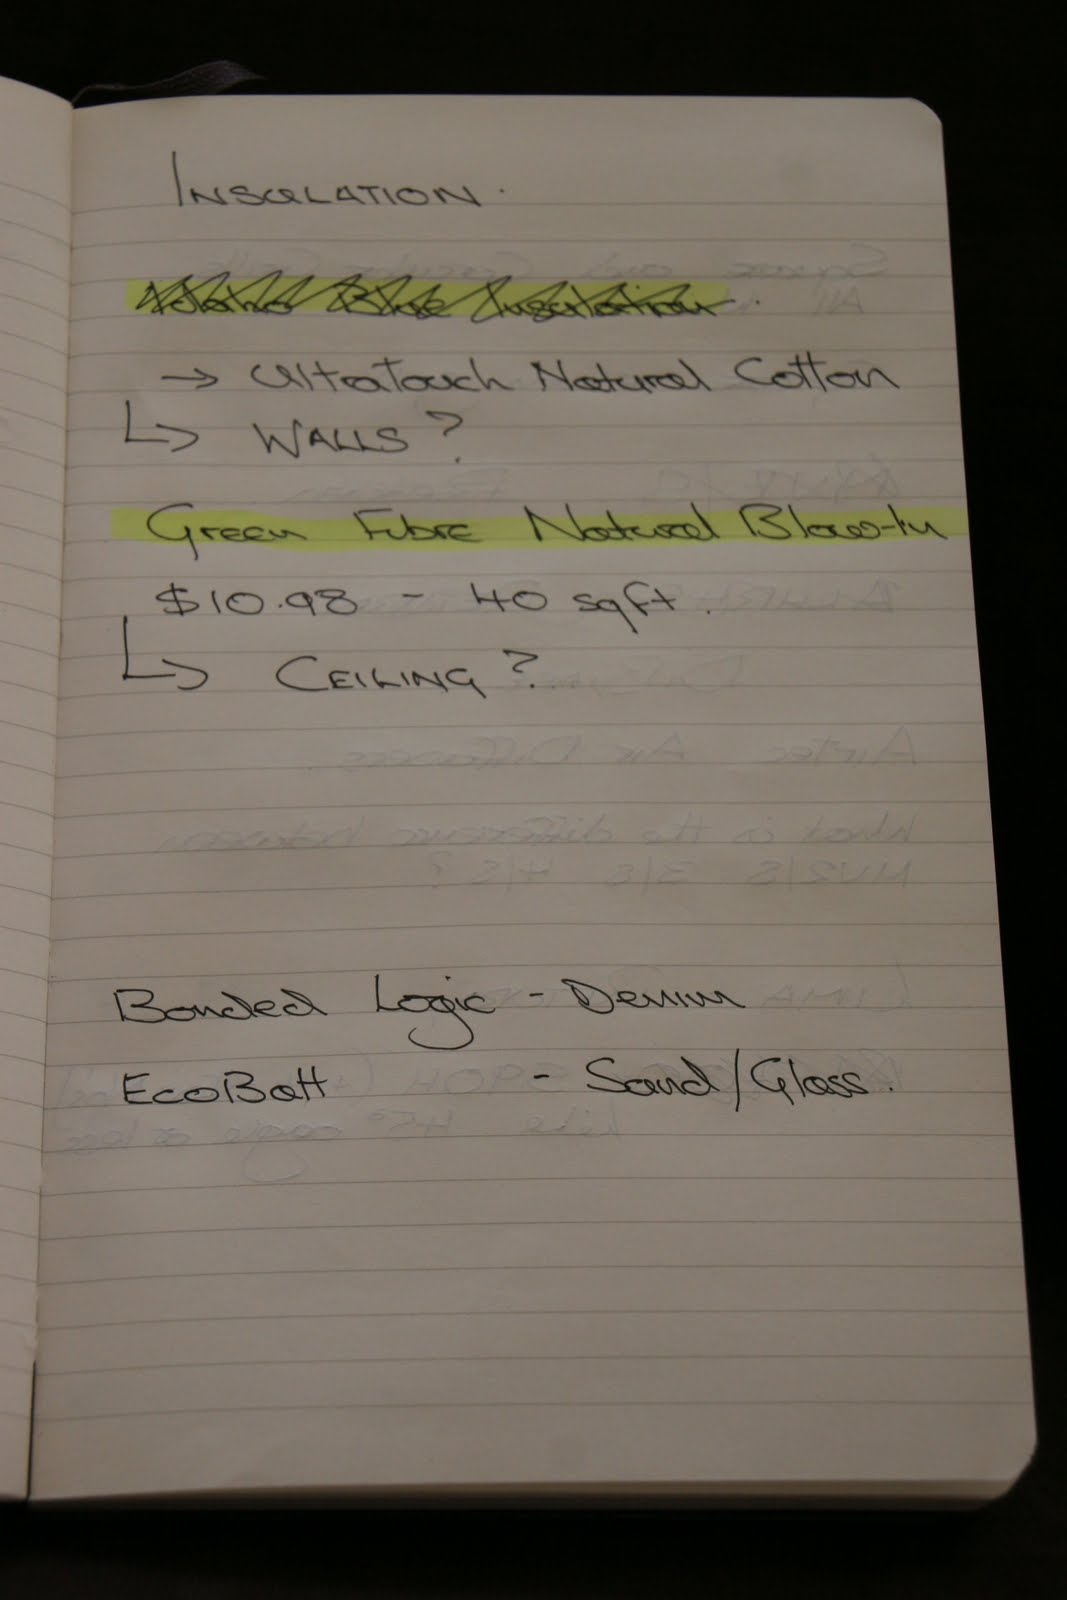 INSULATION.
Blue Insulation.
→ UltraTouch Natural Cotton
↳ WALLS?
Green Fibre Natural Blow-In
$10.98 - 40 sqft.
↳ CEILING?
Bonded Logic - Denim
EcoBatt - Sand/Glass.